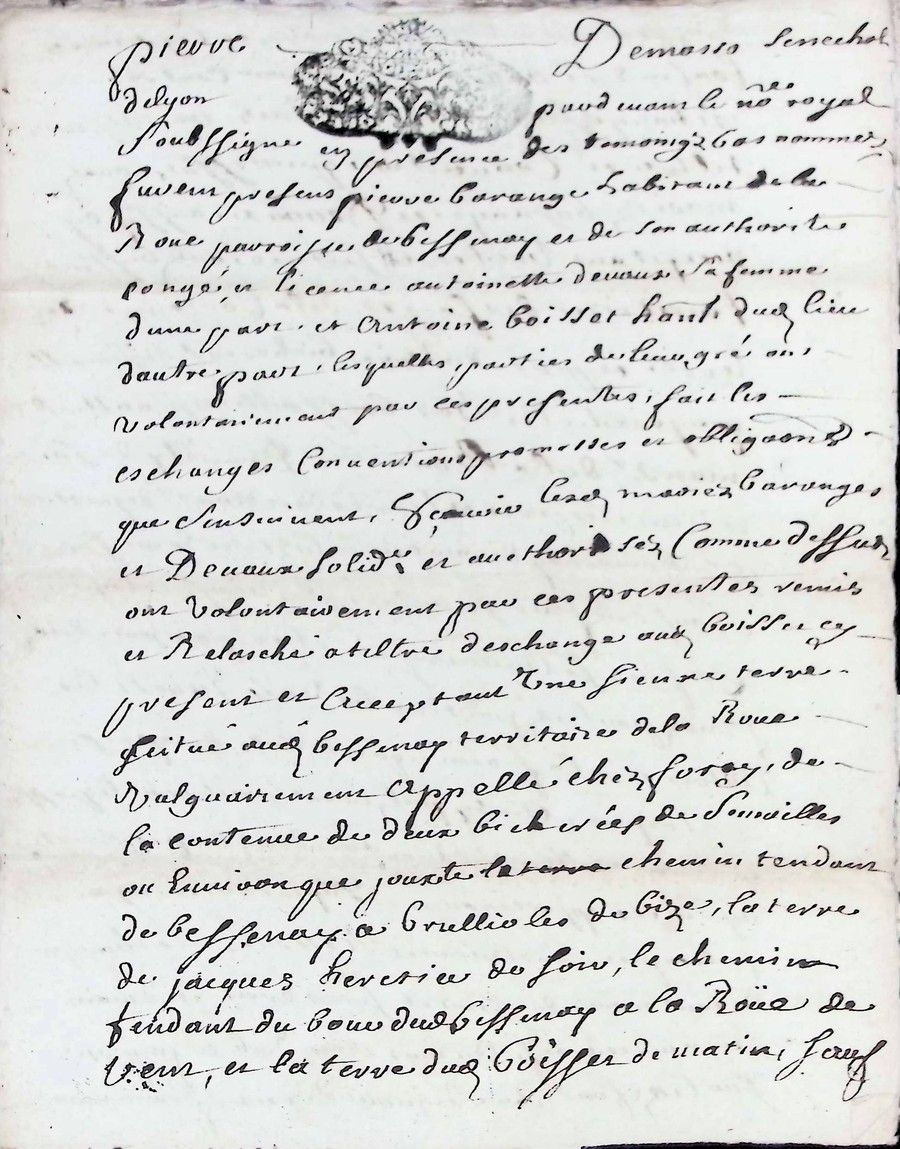 pierre Demasso Senechal
delyon pardevant le nōre royal
Soubssigne en presence des temoingz bas nommez
furent presens pierre barange habitant de la
Roue parroisse de bessenay et de son authorite
congé, et licence antoinette devaux sa femme
dune part, et Antoine boisset hant dud lieu
dautre part, lesquelles parties de leur gré ont
volontairement par ces presentes, fait les
eschanges Conventions promesses et obligaōns
que sensuivent, Scavoir lesd mariez baranges
et Devaux solidre et aucthoriséz Comme dessus
ont volontairement par ces presentes remis
et Relasché a tiltre deschange aud boisset cy
present et acceptant Une sienne terre
scitué aud bessenay territoire dela Roue
Vulguairement Appellé chez foray, de
la contenue de deux bicherées de Semailles
ou Environ que jouxte la terre chemin tendant
de bessenay a brullioles de bize, la terre
de jacques heretie de soir, le chemin
tendant du bour dud bessenay a la Roüe de
vent, et la terre dud boisset de matin, sauf